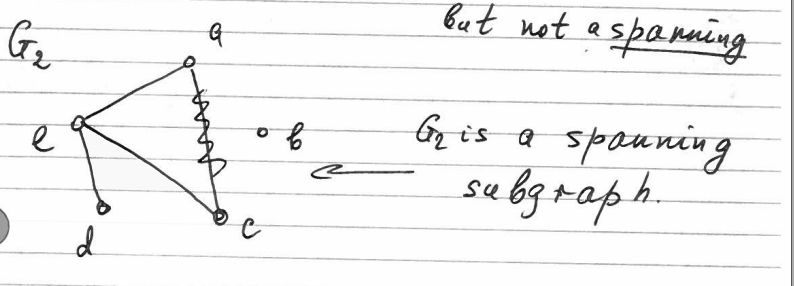 but not a spanning
G₂
a
e
b
G₂ is a spanning
subgraph.
c
d